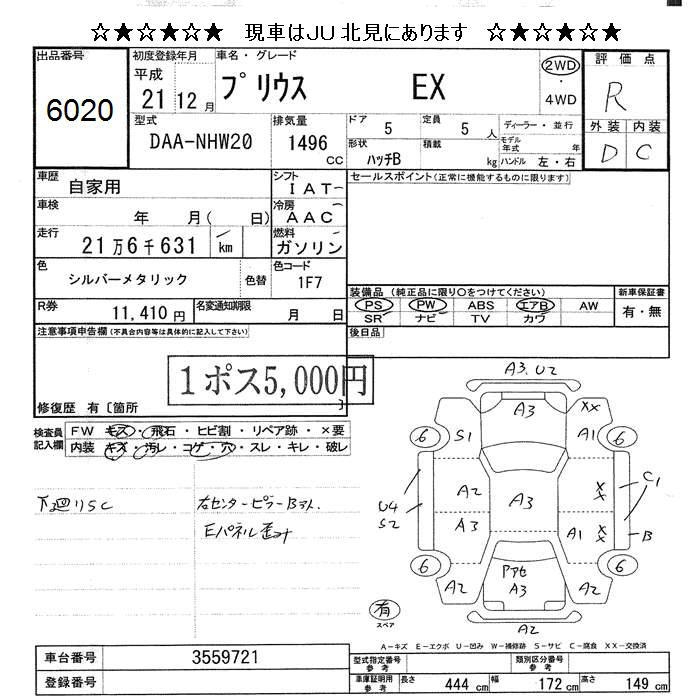 ☆★☆★☆★ 現車はJU北見にあります ☆★☆★☆★
出品番号
6020
初度登録年月
平成
21 12月
車名・グレード
プリウス EX
2WD
・
4WD
評価点
R
外装 内装
D C
型式
DAA-NHW20
排気量
1496
cc
ドア
5
定員
5 人
形状
ハッチB
積載
kg
ディーラー・並行
モデル年式 年
ハンドル 左・右
車歴
自家用
シフト
IAT
車検
年 月( 日)
冷房
AAC
走行
21万6千631 km
燃料
ガソリン
色
シルバーメタリック
色替
色コード
1F7
R券
11,410円
名変通知期限
月 日
セールスポイント(正常に機能するものに限ります)
装備品 (純正品に限り○をつけてください)
PS PW ABS エアB AW
SR ナビ TV カワ
新車保証書
有・無
後日品
注意事項申告欄(不具合内容等は具体的に記入して下さい)
1ポス5,000円
修復歴 有〔箇所 〕
検査員記入欄
FW キズ・飛石・ヒビ割・リペア跡・×要
内装 キズ・汚レ・コゲ・穴・スレ・キレ・破レ
下廻りSC
右センターピラーBヌケ.
Eパネル歪み
A3.U2
A3
XX
6
S1
A1
6
A2
A3
XX
C1
U4
S2
A3
A1
XX
B
6
Pアセ
A3
6
A2
A2
有
スペア
A2
A-キズ E-エクボ U-凹み W-補修跡 S-サビ C-腐食 XX-交換済
車台番号
3559721
登録番号
型式指定番号
参考
類別区分番号
参考
車庫証明用
参考
長さ 444 cm
幅 172 cm
高さ 149 cm